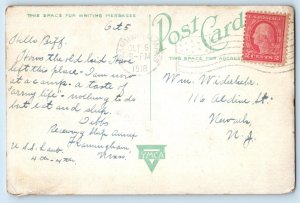 THIS SPACE FOR WRITING MESSAGES
Post Card
THIS SPACE FOR ADDRESS
Oct 5
Hello Biff,
How's the old lad. Have
left this place - I am now
at a camp. a taste of
army life - nothing to do
but eat and sleep.
Tebbs
Framingham,
Mass.
4th - 4th
Wm.
116
St
N. J.
YMCA
2 CENTS 2